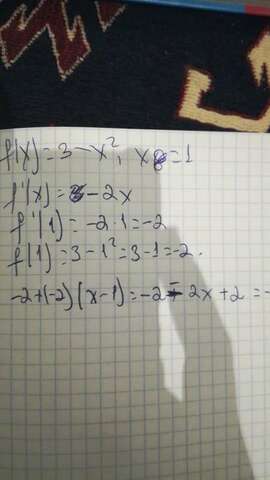 f(x)=3-x², x₀=1
f'(x)= -2x
f'(1)= -2·1=-2
f(1)=3-1²=3-1=-2.
-2+(-2)(x-1)=-2-2x+2=-